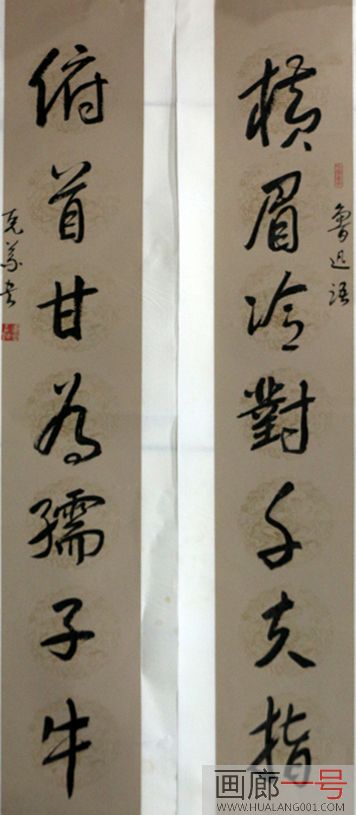 横眉冷對千夫指
魯迅語
俯首甘為孺子牛
克義書
画廊一号
WWW.HUALANG001.COM